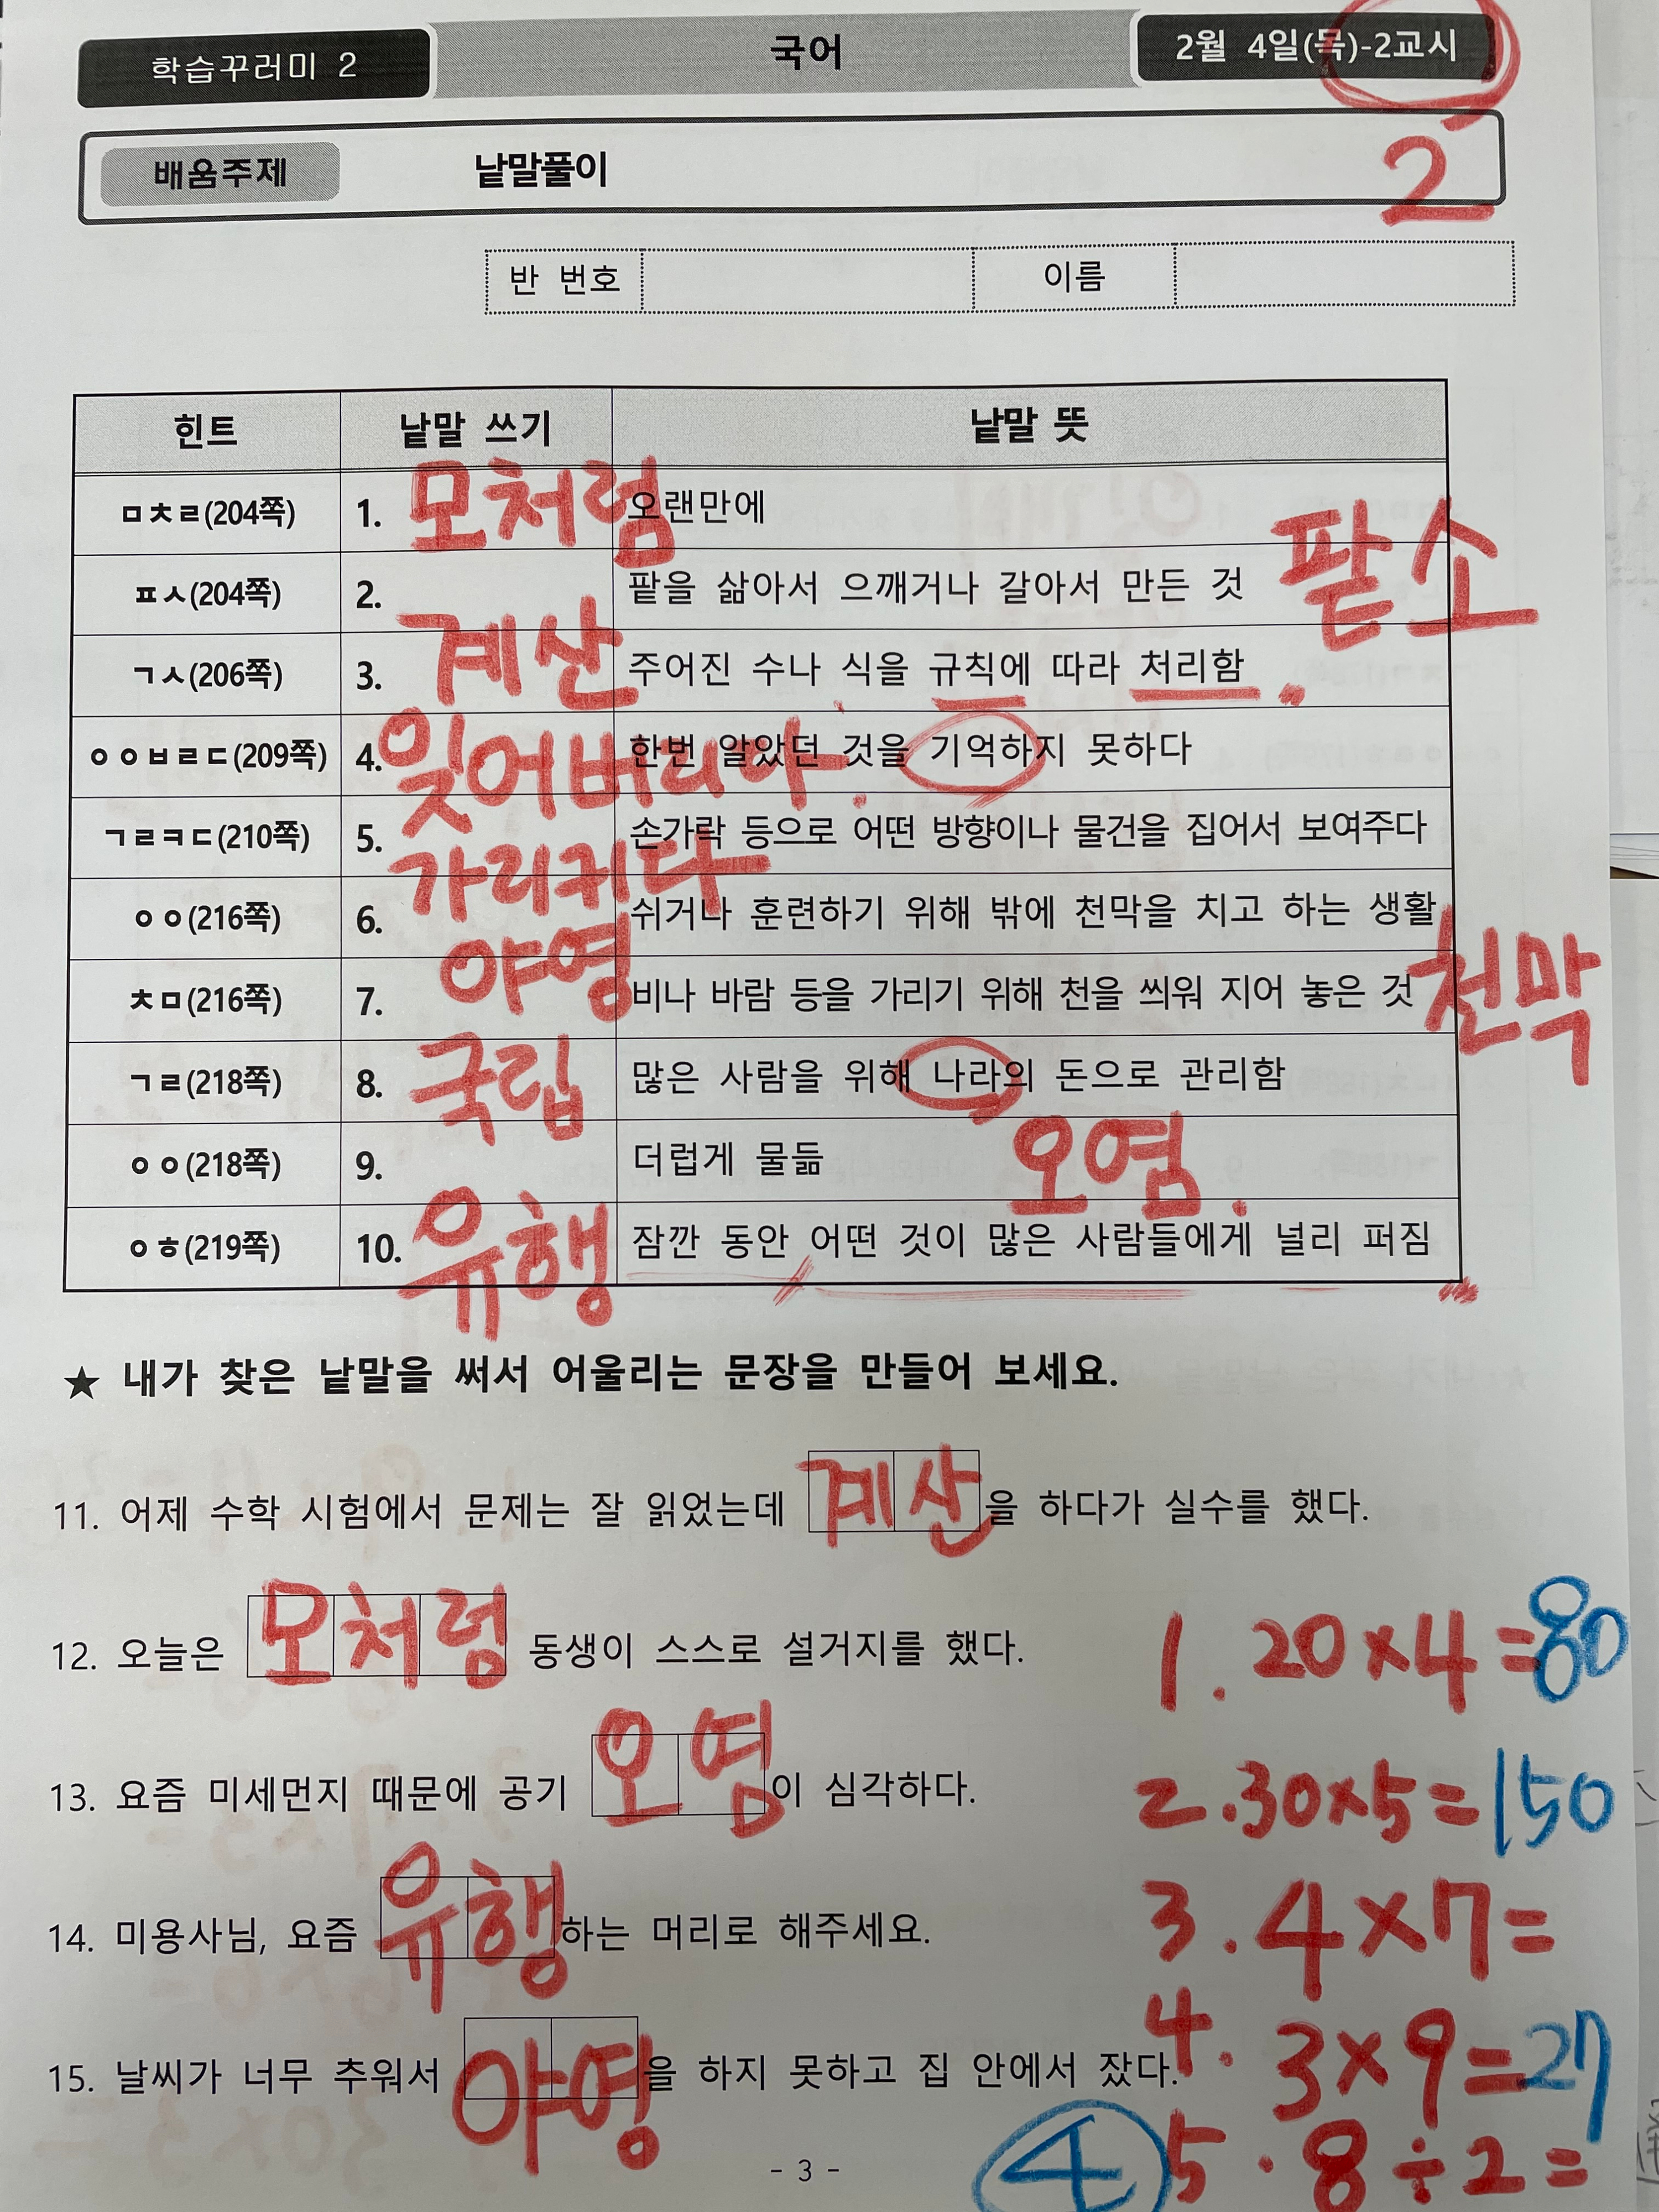 학습꾸러미 2 국어 2월 4일(목)-2교시
2
배움주제 낱말풀이
반 번호 이름
힌트 낱말 쓰기 낱말 뜻
ㅁㅊㄹ(204쪽) 1. 모처럼 오랜만에
ㅍㅅ(204쪽) 2. 팥을 삶아서 으깨거나 갈아서 만든 것 팥소
ㄱㅅ(206쪽) 3. 계산 주어진 수나 식을 규칙에 따라 처리함
ㅇㅇㅂㄹㄷ(209쪽) 4. 잊어버리다. 한번 알았던 것을 기억하지 못하다
ㄱㄹㅋㄷ(210쪽) 5. 가리키다 손가락 등으로 어떤 방향이나 물건을 집어서 보여주다
ㅇㅇ(216쪽) 6. 야영 쉬거나 훈련하기 위해 밖에 천막을 치고 하는 생활
ㅊㅁ(216쪽) 7. 비나 바람 등을 가리기 위해 천을 씌워 지어 놓은 것 천막
ㄱㄹ(218쪽) 8. 국립 많은 사람을 위해 나라의 돈으로 관리함
ㅇㅇ(218쪽) 9. 더럽게 물듦 오염.
ㅇㅎ(219쪽) 10. 유행 잠깐 동안 어떤 것이 많은 사람들에게 널리 퍼짐
★ 내가 찾은 낱말을 써서 어울리는 문장을 만들어 보세요.
11. 어제 수학 시험에서 문제는 잘 읽었는데 계산을 하다가 실수를 했다.
12. 오늘은 모처럼 동생이 스스로 설거지를 했다.
1. 20×4=80
13. 요즘 미세먼지 때문에 공기 오염이 심각하다.
2. 30×5=150
14. 미용사님, 요즘 유행하는 머리로 해주세요.
3. 4×7=
15. 날씨가 너무 추워서 야영을 하지 못하고 집 안에서 잤다.
4. 3×9=27
4 5. 8÷2=
- 3 -